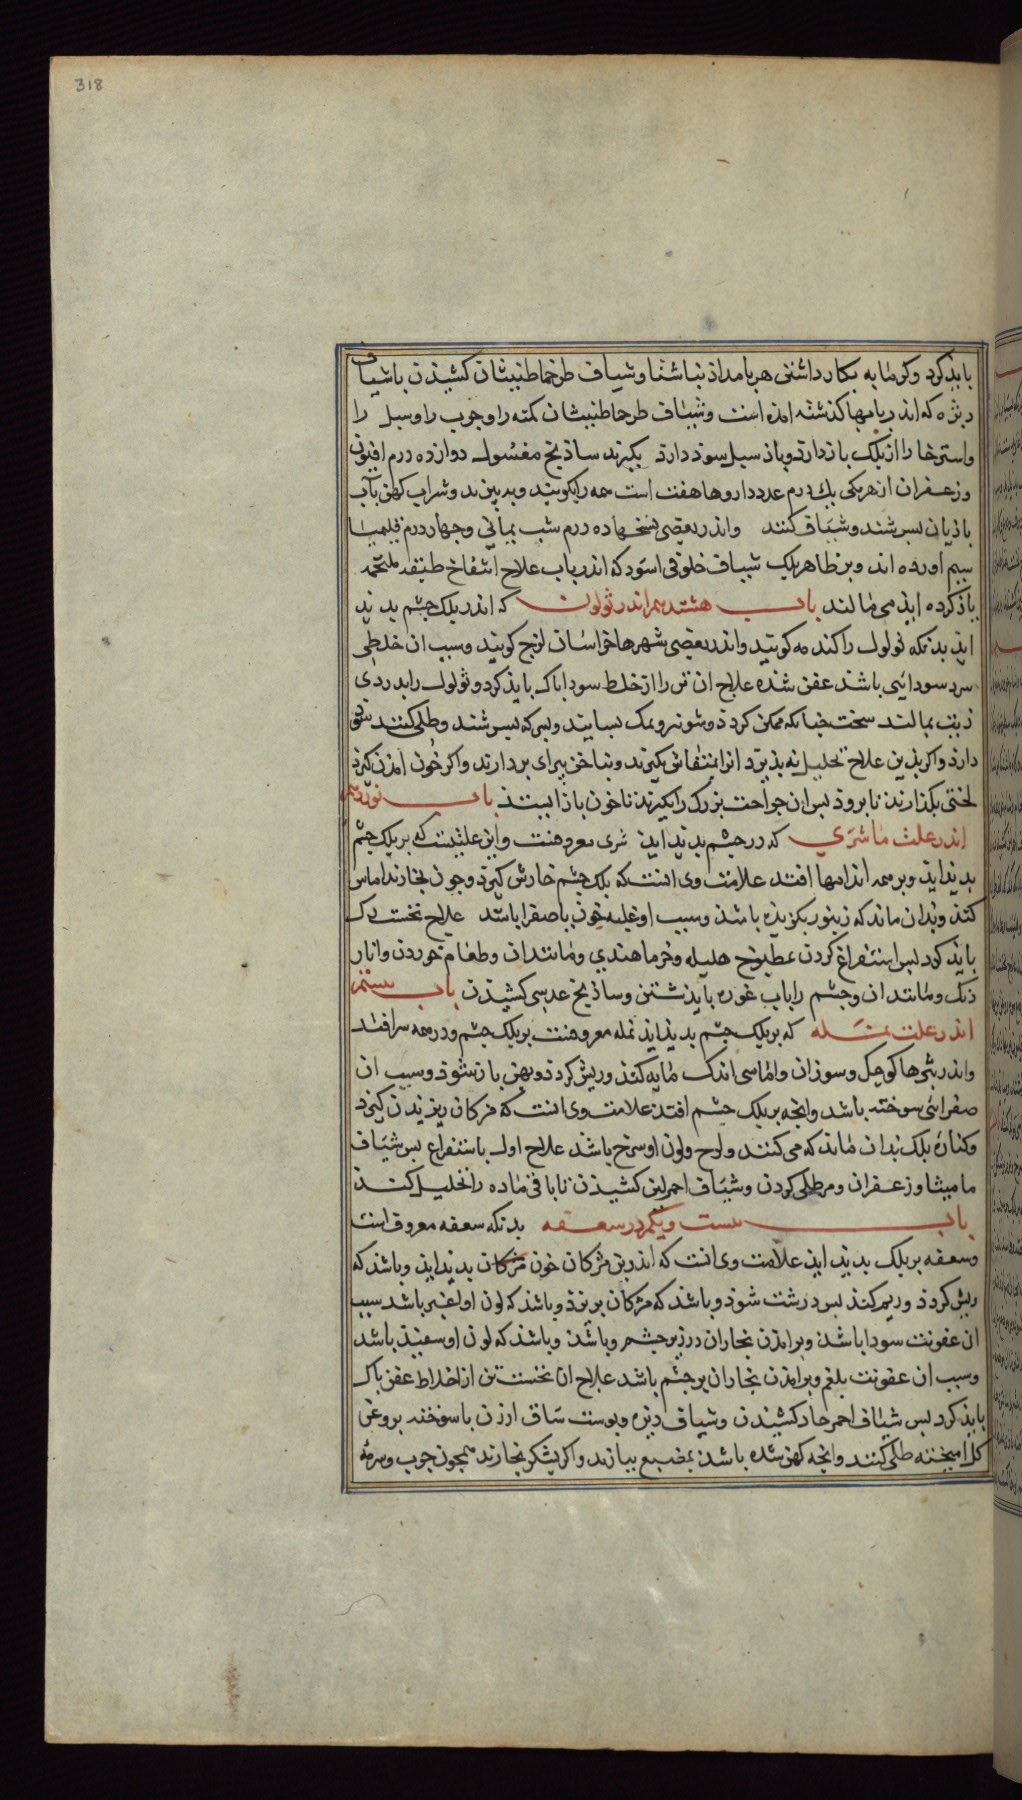 318
بایذ کرد وکرمابه بکار داشتن هر بامداذ بناشتا وشیاف طرخماطیشان کشیذن باشیاف
دیزه که اندر بابها کذشته امده است وشیاف طرحماطیشان کمته را وجرب را وسبل را
واسترخا را از پلک باز دارد وباذ سبل سوذ دارد بکیرند ساذنج مغسول دوازده درم افیون
وزعفران از هریکی یك درم عدد داروها هفت است همه را بکوبند وببیزند وشراب کهن بآب
باذیان بسرشند وشیاف کنند واندر بعضی نسخها ده درم شب یمانی وچهار درم قلیمیا
سیم اورده اند وبر ظاهر پلک شیاف خلوقی اسود که اندر باب علاج انتفاخ طبقه ملتحمه
یاذ کرده ایذ می مالند باب هشتدهم اندر ثولول که اندر پلک چشم بدید
ایذ بدنکه ثولول را کندمه کویند واندر بعضی شهرها خراسان لوج کویند وسبب ان خلطی
سرد سودائی باشد عفن شذه علاج ان تن را از خلط سودا پاک بایذ کرد وثولول را بدردی
زیت بمالند سخت چنانکه ممکن کردذ وشونیز ونمک بسایند وبسرکه بسرشند وطلی کنند سوذ
دارذ واکر بذین علاج تحلیل نه پذیرد انرا بمنقاش بکیرند وبناخن بیرای بردارند واکر خون امذن کیرد
لختی بکذارند تا بروذ پس ان جراحت بزرک را بکیرند تا خون باز ایستذ باب نوزدهم
اندر علت ماشری که در چشم بدید اید شری معروفست واین علتیست که بر پلک چشم
بدید اید وبر همه اندامها افتد علامت وی انست که پلک چشم خارش کیرد وچون بخارند اماس
کند وبدان ماند که زنبور بکزیذه باشذ وسبب او غلبه خون با صفرا باشد علاج نخست رک
بایذ کرد پس استفراغ کردن بمطبوخ هلیله وخرما هندی ومانند ان وطعام خوردن وانار
دنک ومانند ان وچشم را باب غوره بایذ شستن وساذنج عدسی کشیذن باب بیستم
اندر علت نمله که بر پلک چشم بدید اید نمله معروفست بر پلک چشم ودر همه سر افتد
واندر بثرها کوچک وسوزان واماسی اندک مایه کند وریش کردد وپهن باز شوذ وسبب ان
صفرائی سوخته باشد وانچه بر پلک چشم افتد علامت وی انست که مژکان ریزیدن کیرد
وکناره پلک بدان ماند که می کنند ولون او سرخ باشد علاج اول باستفراغ پس شیاف
مامیثا وزعفران ومر طلی کردن وشیاف احمر لین کشیذن تا باقی ماده را تحلیل کند
باب بیست ویکم در سعفه بدنکه سعفه معروف است
وسعفه بر پلک بدید اید علامت وی انست که اندر بن مژکان خون مژکان بدید اید وباشد که
ریش کردد وریم کند پس درشت شوذ وباشد که مژکان بریزذ وباشد که لون او اغبر باشد سبب
ان عفونت سودا باشد وبرامذن بخار ان در زیر چشم وباشد وباشد که لون او سفید باشد
وسبب ان عفونت بلغم وبرامذن بخار ان بر چشم باشد علاج ان نخست تن از اخلاط عفن پاک
بایذ کرد پس شیاف احمر حاد کشیذن وشیاف دیزه وپوست ساق ارزن با سوخته بروغن
کل امیخته طلی کنند وانچه کهن شده باشد بمضبع بیازند واکر بشکر بخارند همچون جرب وسرمه